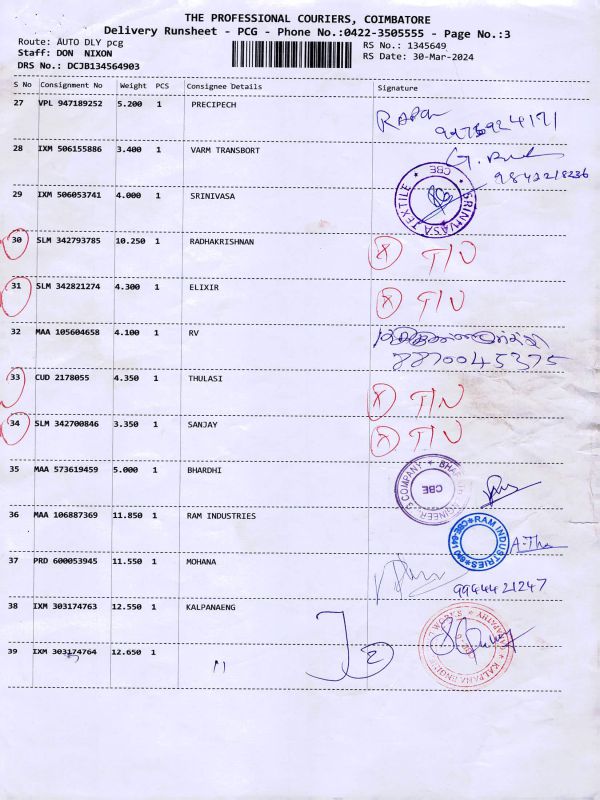 THE PROFESSIONAL COURIERS, COIMBATORE
Delivery Runsheet - PCG - Phone No.:0422-3505555 - Page No.:3
Route: AUTO DLY pcg RS No.: 1345649
Staff: DON NIXON RS Date: 30-Mar-2024
DRS No.: DCJB134564903
S No Consignment No Weight PCS Consignee Details Signature
27 VPL 947189252 5.200 1 PRECIPECH
28 IXM 506155886 3.400 1 VARM TRANSBORT 9842218236
29 IXM 506053741 4.000 1 SRINIVASA SRINIVASA TEXTILE CBE
30 SLM 342793785 10.250 1 RADHAKRISHNAN X T/N
31 SLM 342821274 4.300 1 ELIXIR X T/N
32 MAA 105604658 4.100 1 RV 8870045375
33 CUD 2178055 4.350 1 THULASI X T/N
34 SLM 342700846 3.350 1 SANJAY X T/N
35 MAA 573619459 5.000 1 BHARDHI COMPANY CBE
36 MAA 106887369 11.850 1 RAM INDUSTRIES RAM INDUSTRIES
37 PRD 600053945 11.550 1 MOHANA 9944421247
38 IXM 303174763 12.550 1 KALPANAENG
39 IXM 303174764 12.650 1 11 2